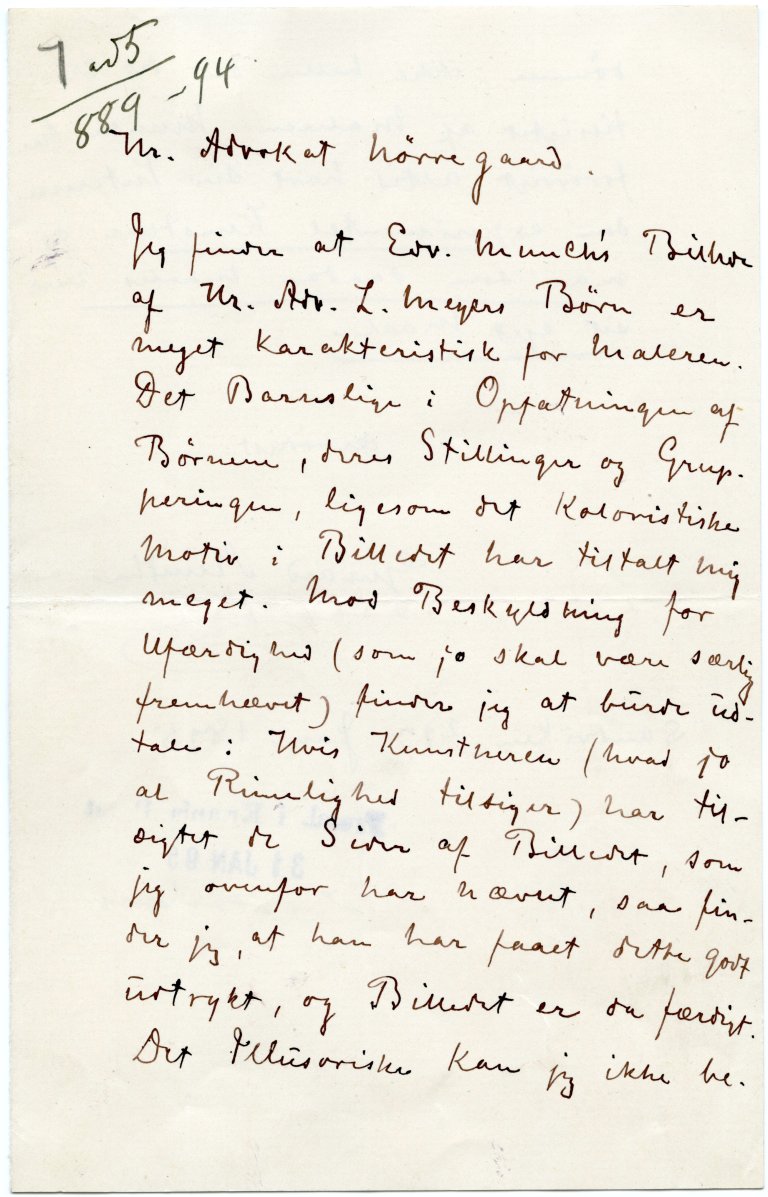 9 ad 5
889 - 94
Hr. Advokat Nörregaard.
Jeg finder at Edv. Munch's Billede
af Hr. Adv. L. Meyers Börn er
meget karakteristisk for Maleren.
Det Barnslige i Opfatningen af
Börnene, deres Stillinger og Grup-
peringen, ligesom det koloristiske
Motiv i Billedet har tiltalt mig
meget. Mod Beskyldning for
Ufærdighed (som jo skal være særlig
fremhævet) finder jeg at burde ud-
tale: Hvis Kunstneren (hvad jo
al Rimelighed tilsiger) har til-
sigtet de Sider af Billedet, som
jeg ovenfor har nævnt, saa fin-
der jeg, at han har faaet dette godt
udtrykt, og Billedet er da færdigt.
Det Illusoriske kan jeg ikke be-